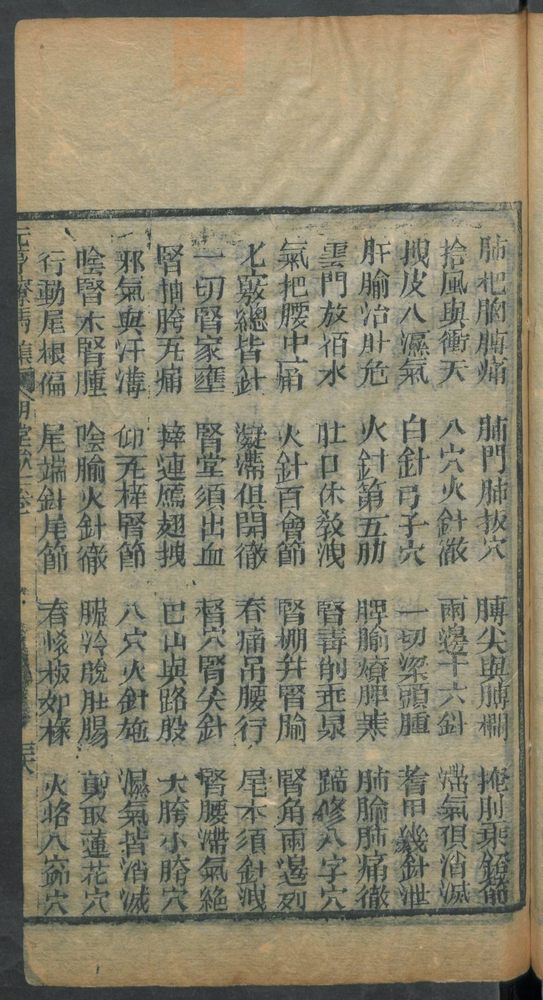 肺把胸膊痛　肺門肺扳穴　膊尖與膊欄　掩肘乘鐙節
搶風與衝天　八穴火針徹　兩邊十六針　滯氣俱消滅
拽皮入濕氣　白針弓子穴　一切梁頭腫　着甲幾針泄
肝腧治肝危　火針第五肋　脾腧療脾某　肺腧肺痛徹
雲門放宿水　肚口休教洩　腎毒削垂泉　蹄修八字穴
氣把腰中痛　火針百會節　腎棚并腎腧　腎角兩邊列
七竅總皆針　凝滯俱開徹　春痛吊腰行　尾本須針洩
一切腎家壅　腎堂須出血　腎穴腎尖針　腎腰滯氣絕
腎抽胯瓦痛　摔連鴈翅拽　巴山與路股　大胯小胯穴
邪氣與汗溝　仰瓦榫腎節　八穴火針施　濕氣皆消滅
陰腎木腎腫　陰腧火針徹　臟冷脫肚腸　剪取蓮花穴
行動尾根偏　尾端針尾節　春慘板如椽　火烙八窌穴
元亨療馬集　明堂 卷一　三六